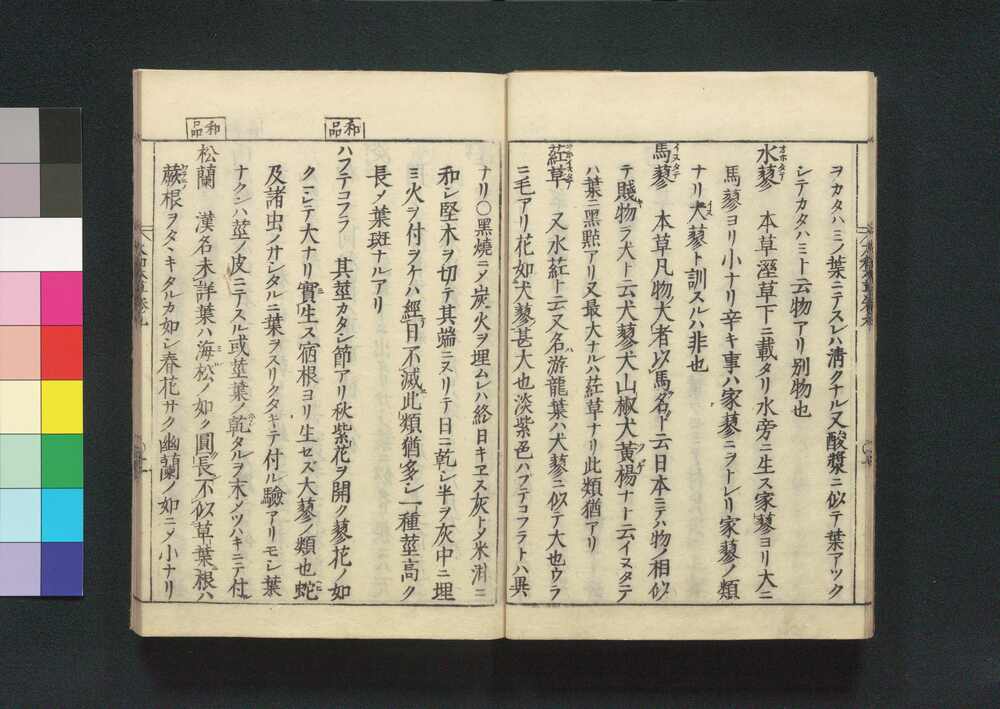 ヲカタハミノ葉ニテスレハ清クナル又酸漿ニ似テ葉アツク
シテカタハミト云物アリ別物也
水蓼 本草溼草下ニ載タリ水旁ニ生ス家蓼ヨリ大ニ
馬蓼ヨリ小ナリ辛キ事ハ家蓼ニヲトレリ家蓼ノ類
ナリ犬蓼ト訓スルハ非也
馬蓼 本草凡物大者以馬名ト云日本ニテハ物ノ相似
テ賤物ヲ犬ト云犬蓼犬山椒犬黄楊ナト云イヌタテ
ハ葉ニ黑㸃アリ又最大ナルハ葒草ナリ此類猶アリ
葒草 又水葒ト云又名游龍葉ハ犬蓼ニ似テ大也ウラ
ニ毛アリ花如犬蓼甚大也淡紫色ハブテコフラトハ異
ナリ〇黑燒ニメ炭火ヲ埋ムレハ終日キエス灰トメ米泔ニ
和シ堅木ヲ切テ其端ニヌリテ日ニ乾シ半ヲ灰中ニ埋
ミ火ヲ付ヲケハ經日不滅此類猶多シ一種莖高ク
長メ葉斑ナルアリ
和品
ハフテコフラ 其莖カタシ節アリ秋紫花ヲ開ク蓼花ノ如
クニシテ大ナリ實生ス宿根ヨリ生セズ大蓼ノ類也蛇
及諸虫ノサシタルニ葉ヲスリクタキテ付ル驗アリモシ葉
ナクンハ莖ノ皮ニテスル或莖葉ノ乾タルヲ末メツハキニテ付
和品
松蘭 漢名未詳葉ハ海松ノ如ク圓長不似草葉根ハ
蕨根ヲタヽキタルカ如シ春花サク幽蘭ノ如ニメ小ナリ